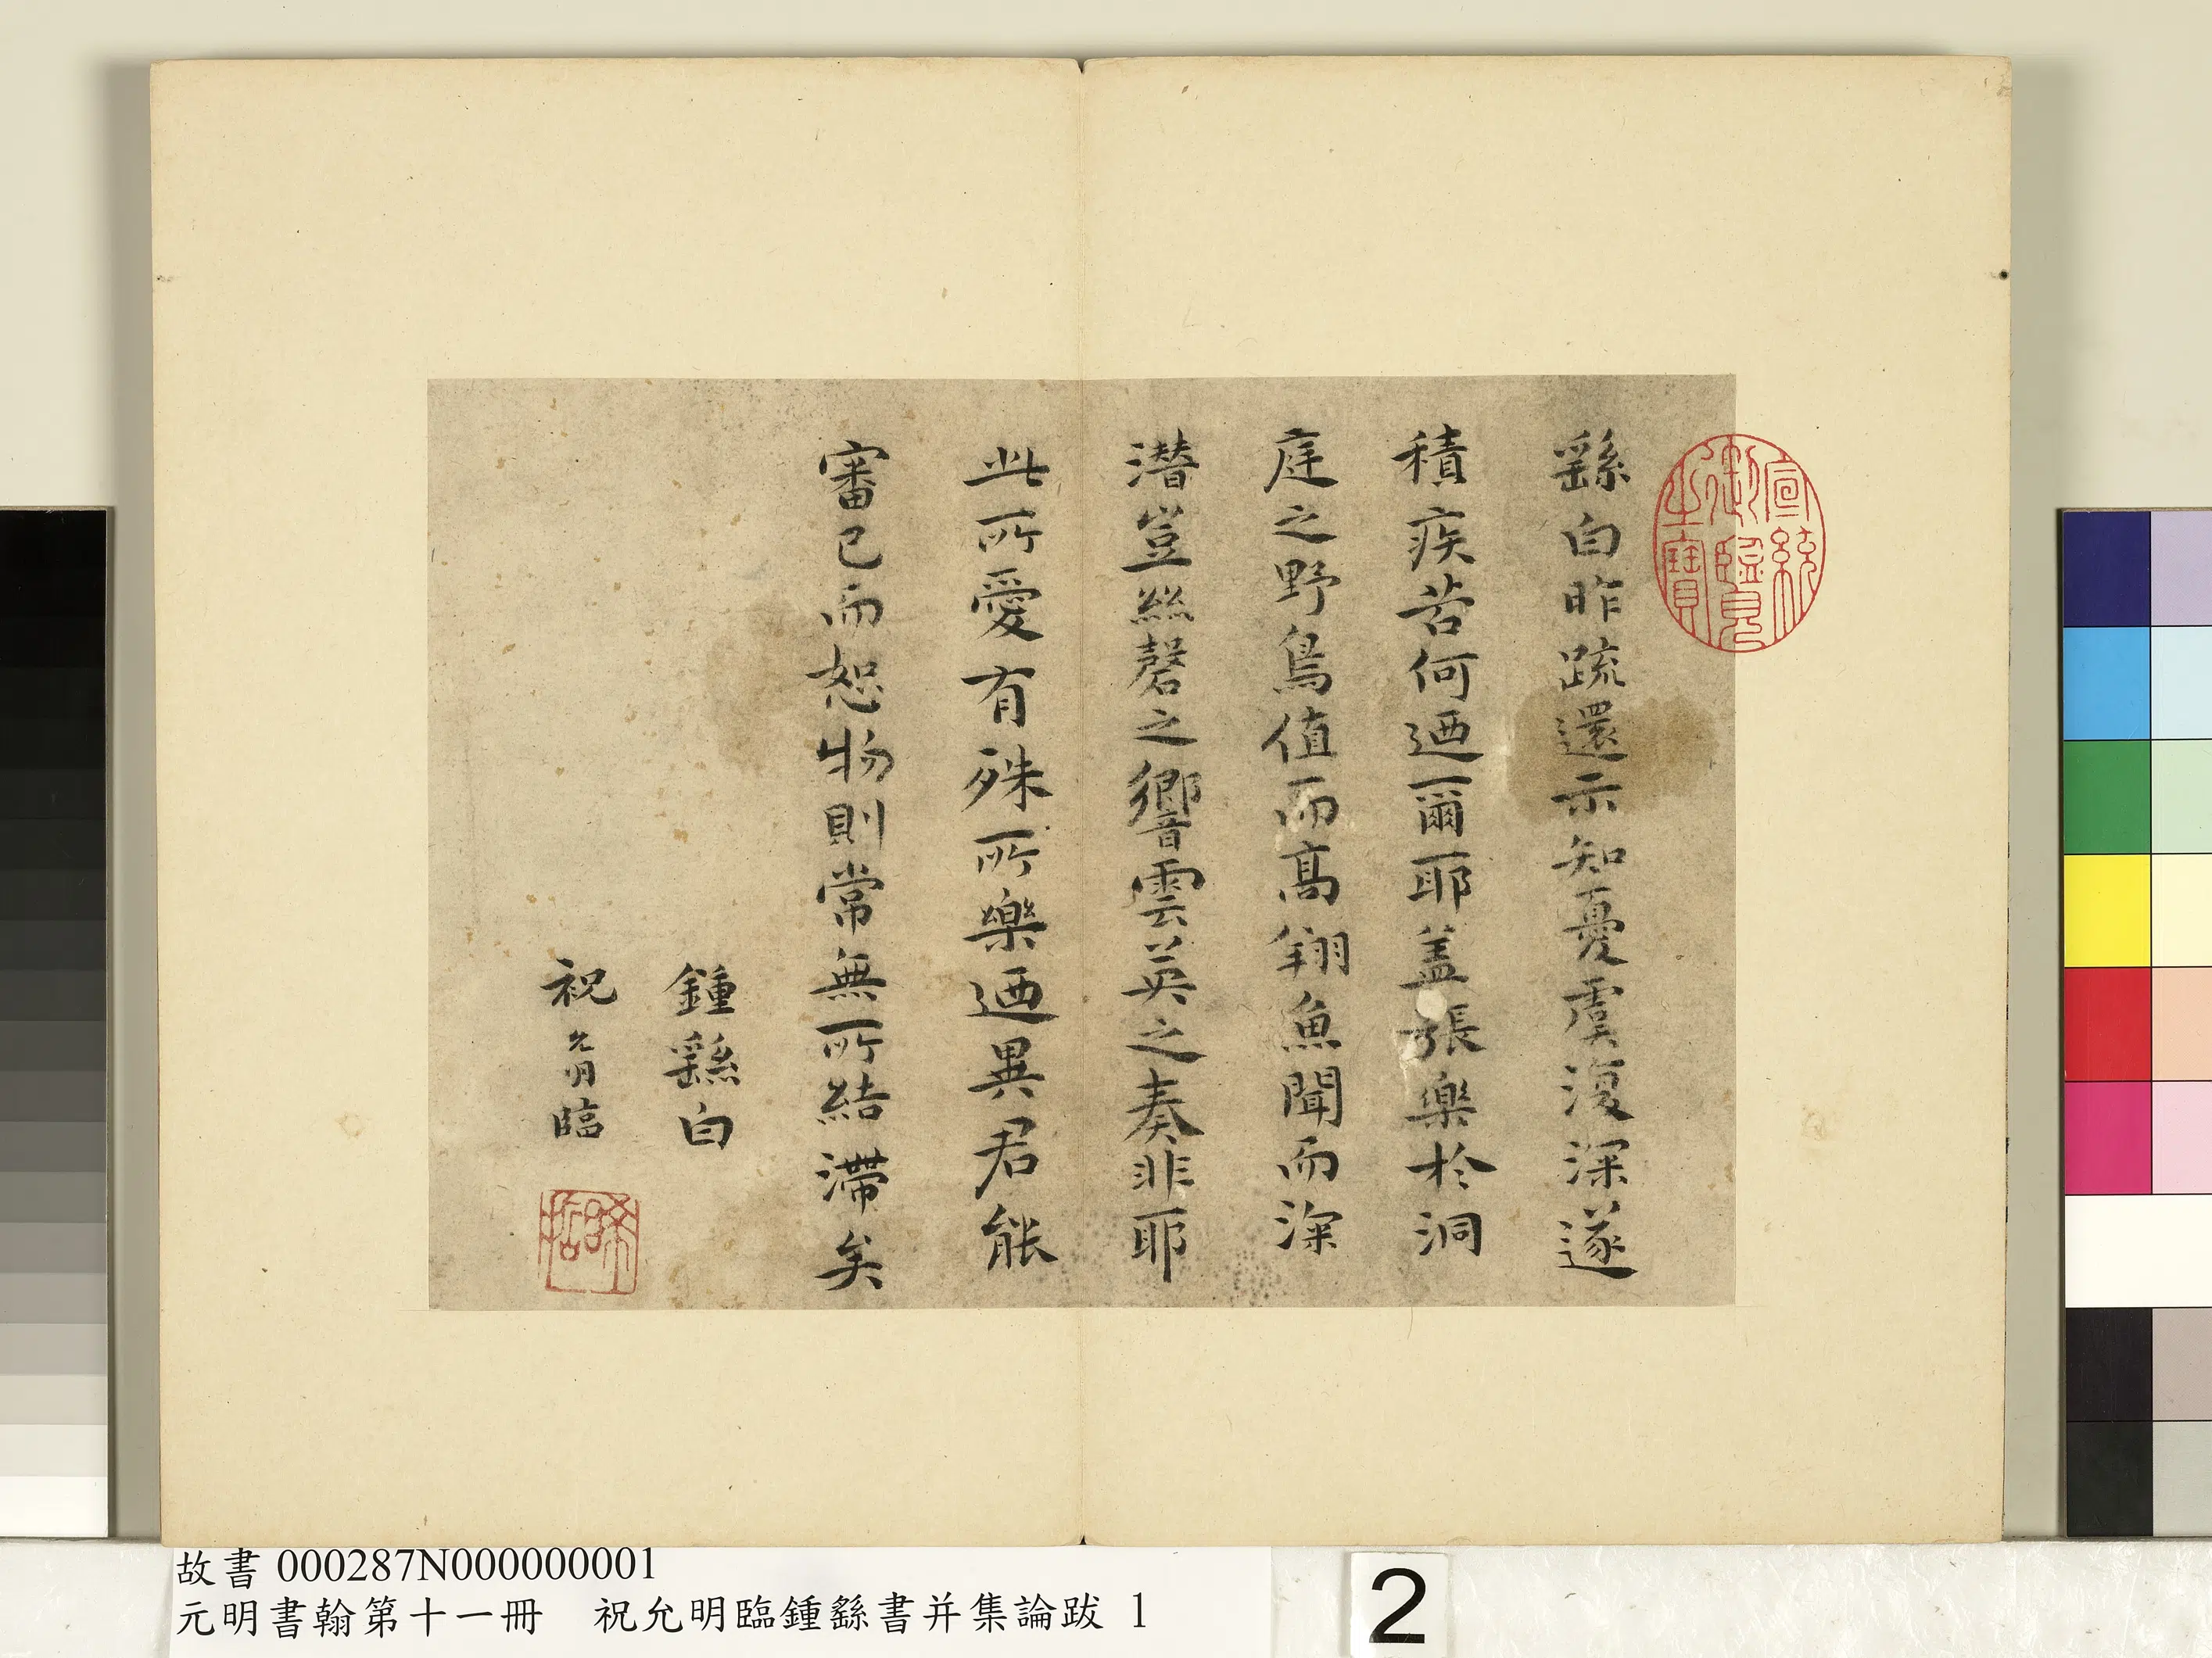 繇白昨疏還示知憂虞復深遂
積疾苦何迺爾耶盖張樂於洞
庭之野鳥值而高翔魚聞而深
潛豈絲磬之響雲英之奏非耶
此所愛有殊所樂迺異君能
審己而恕物則常無所結滯矣
鍾繇白
祝允明臨
宣統
御覽
之寶
希
哲
故書 000287N000000001
元明書翰第十一冊　祝允明臨鍾繇書并集論跋 1
2